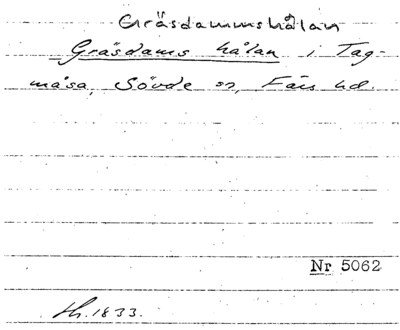 Gräsdammshålan
Gräsdams hålan i Tag-
måsa, Sövde sn, Färs hd.
Nr 5062
Lh. 1833.